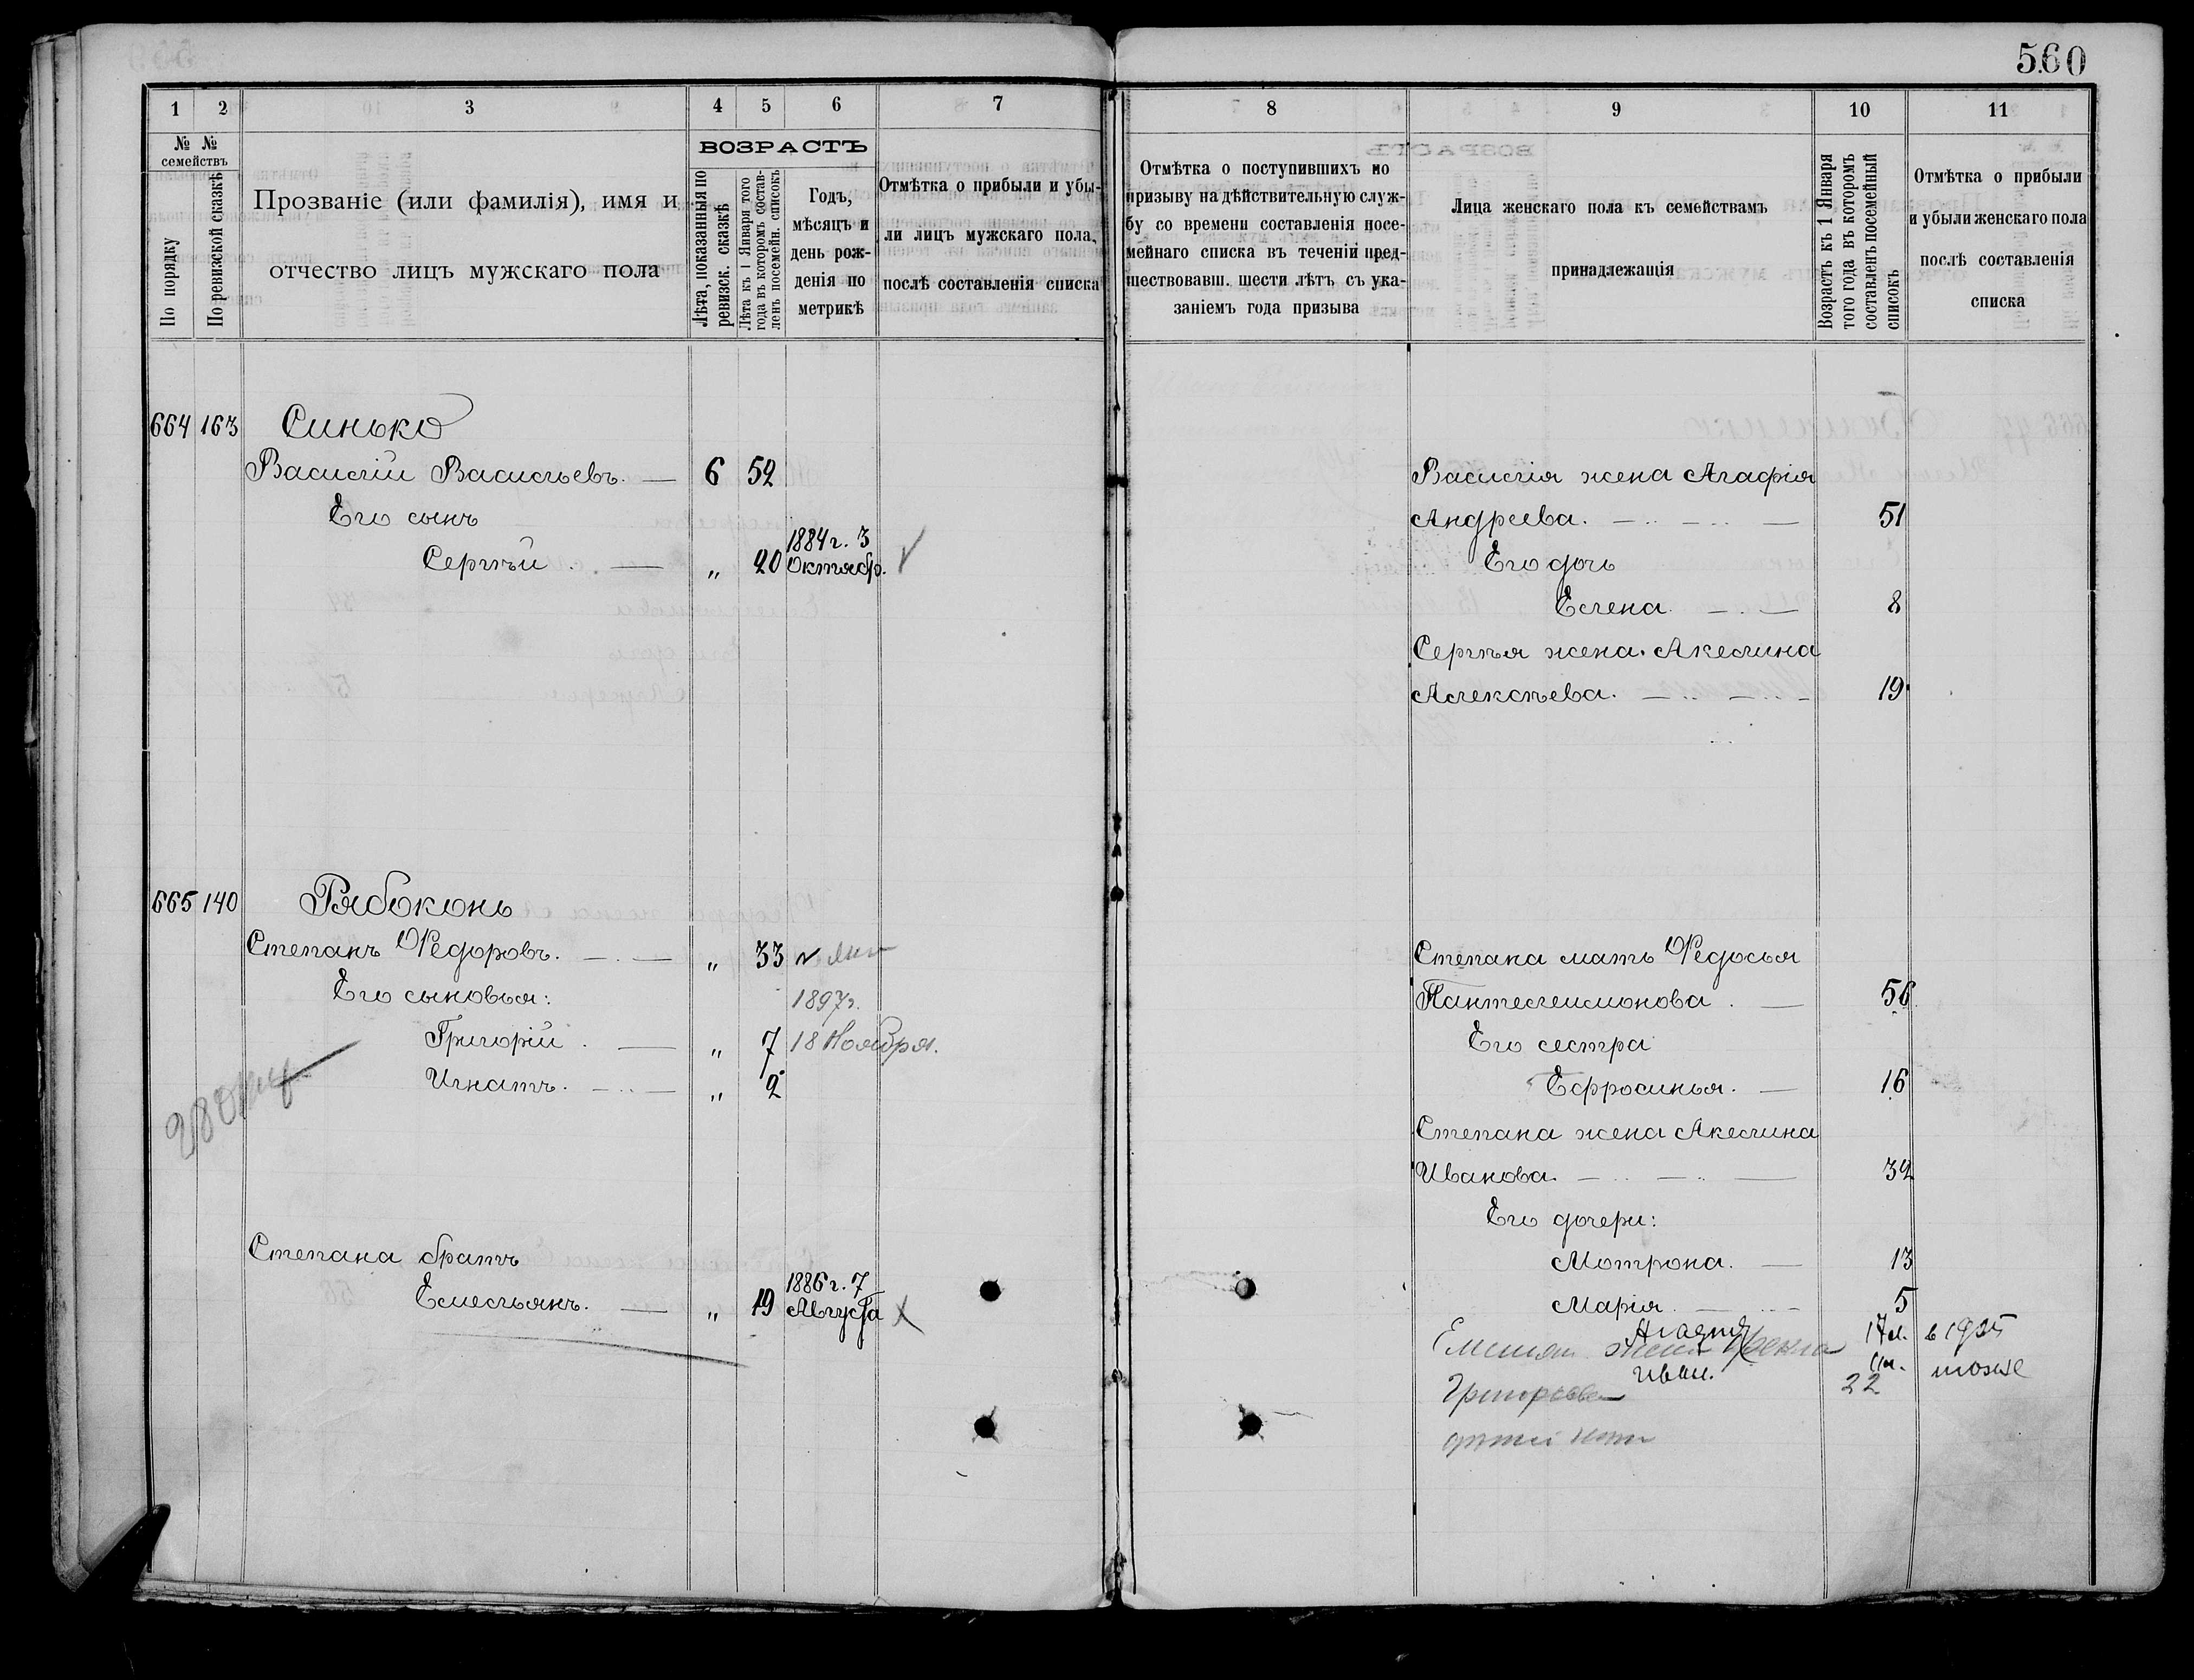 560
1 2 3 4 5 6 7
№ № семействъ
По порядку
По ревизской сказкѣ
Прозваніе (или фамилія), имя и
отчество лицъ мужскаго пола
ВОЗРАСТЪ
Лѣта, показанныя по
ревизск. сказкѣ
Лѣта къ 1 Января того
года въ которомъ состав-
ленъ посемейн. списокъ
Годъ,
мѣсяцъ и
день рож-
денія по
метрикѣ
Отмѣтка о прибыли и убы-
ли лицъ мужскаго пола,
послѣ составленія списка
664 163 Синько
Василій Васильевъ. 6 52
Его сынъ
Сергѣй. „ 20 1884 г. 3
Октябр.
665 140 Рябоконь
Степанъ Ѳедоровъ. „ 33
Его сыновья: 1897г.
Григорій. „ 7 18 Ноября.
Игнатъ. „ 2
Степана братъ
Емельянъ. „ 19 1886 г. 7
Августа
8 9 10 11
Отмѣтка о поступившихъ по
призыву на дѣйствительную служ-
бу со времени составленія посе-
мейнаго списка въ теченіи пред-
шествовавш. шести лѣтъ съ ука-
заніемъ года призыва
Лица женскаго пола къ семействамъ
принадлежащія
Возрастъ къ 1 Января
того года въ которомъ
составленъ посемейный
списокъ
Отмѣтка о прибыли
и убыли женскаго пола
послѣ составленія
списка
Василія жена Агафія
Андреева. 51
Его дочь
Елена. 8
Сергѣя жена Акелина
Алексѣева. 19
Степана мать Ѳедосья
Пантелеимонова. 56
Его сестра
Ефросинья. 16
Степана жена Акелина
Иванова. 32
Его дочери:
Мотрона. 13
Марія. 5
жена
Иван. тоже
Григорьева 22